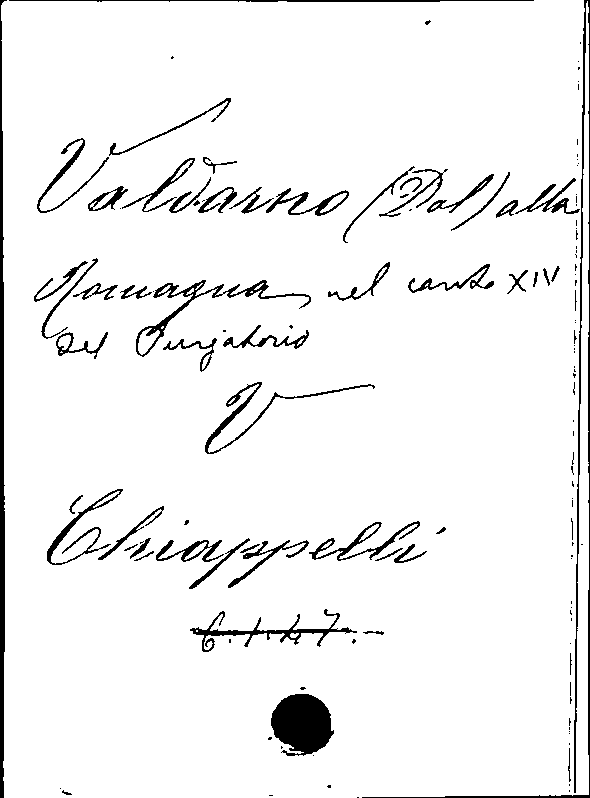 Valdarno (Dal) alla
Romagna nel canto XIV
del Purgatorio
V
Chiappelli
6.1.47.